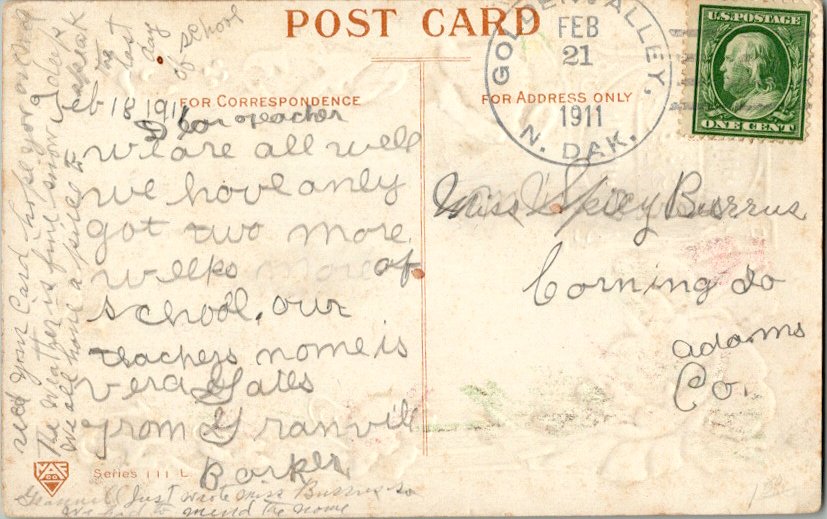 POST CARD
FOR CORRESPONDENCE
FOR ADDRESS ONLY
GOLDEN VALLEY,
FEB
21
1911
N. DAK.
U.S. POSTAGE
ONE CENT
Feb 18 1911
Dear teacher
we are all well
we have only
got two more
weeks more of
school, our
teachers name is
vera Gates
from Granvill
Barker
Series 111 L
Miss Spicy Burrus
Corning Io
adams
Co.
recd your Card hope you enjoy
the weather is fine snow is deep
we all have a piece to speak
the last day
of school
Granvill Just wrote Miss Burrus so
we had to mend the name